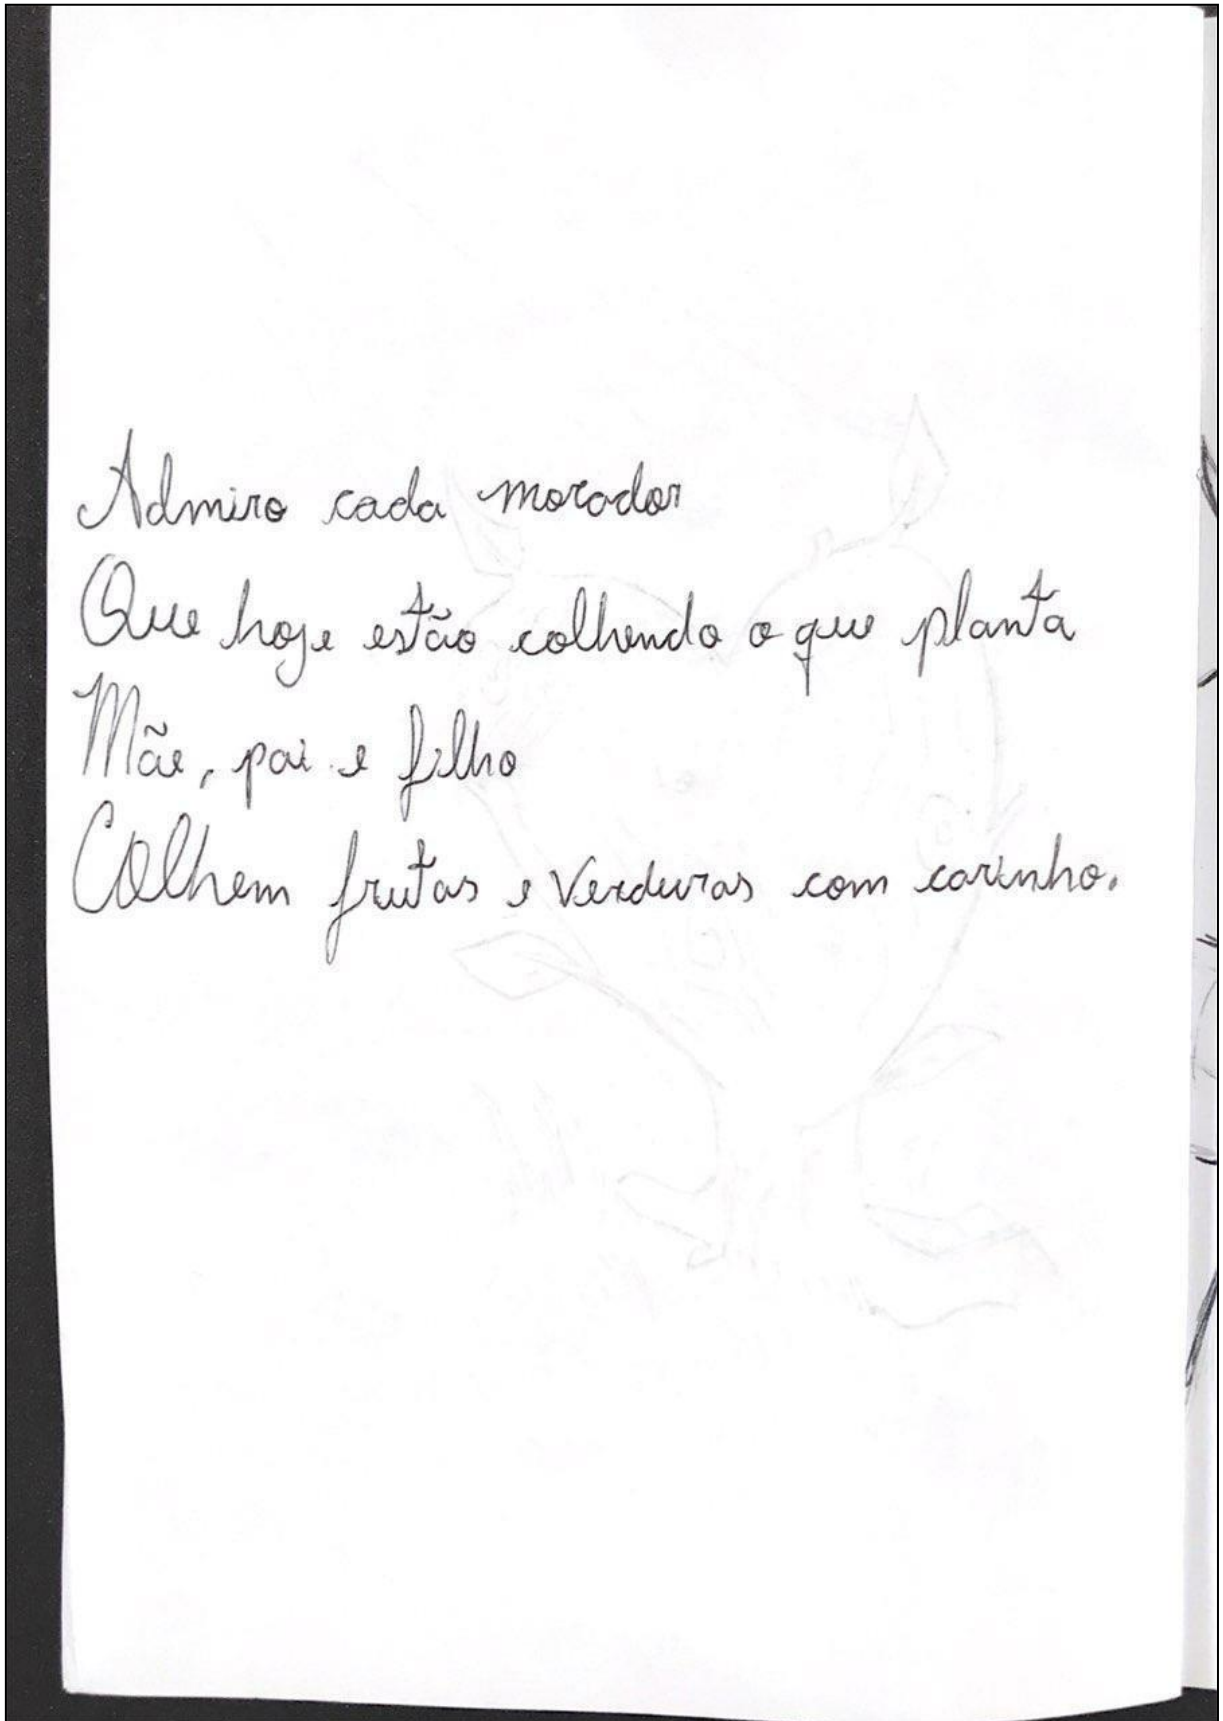 Admiro cada morador
Que hoje estão colhendo o que planta
Mãe, pai e filho
Colhem frutas e Verduras com carinho.